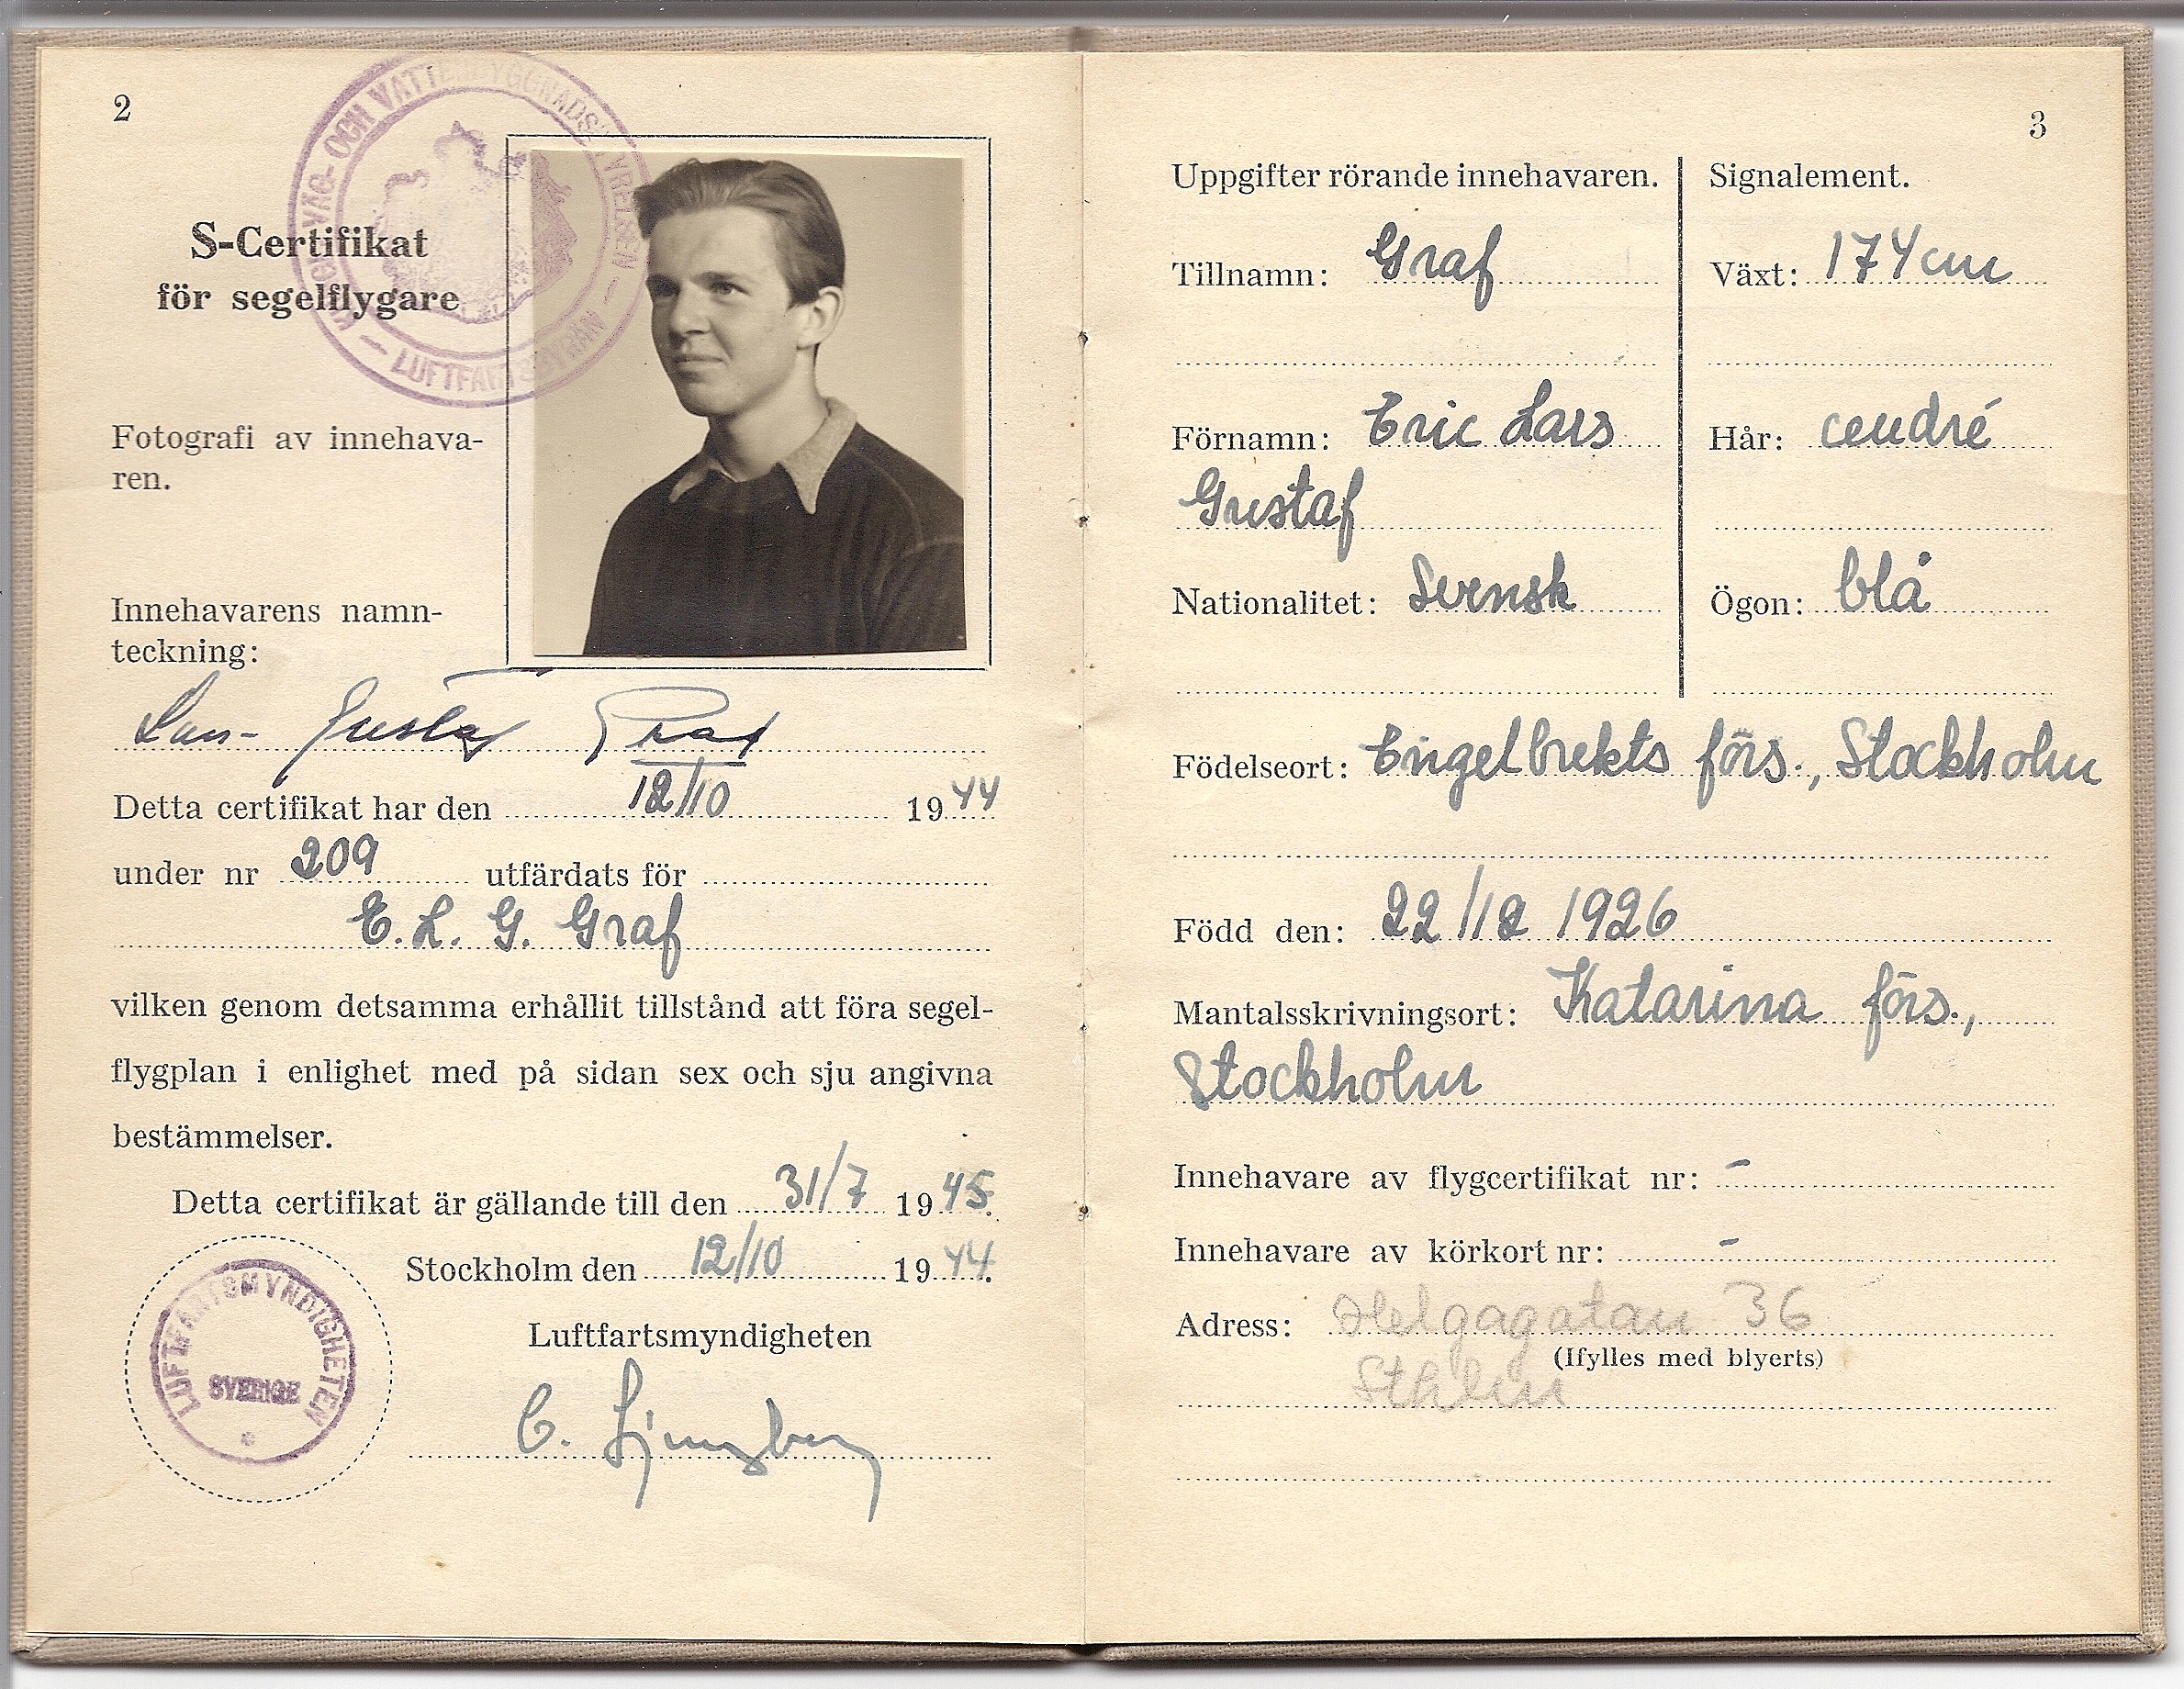 2
KUNGL. VÄG- OCH VATTENBYGGNADSSTYRELSEN
— LUFTFARTSBYRÅN —
S-Certifikat
för segelflygare
Fotografi av innehava-
ren.
Innehavarens namn-
teckning:
Lars-Gustaf Graf
Detta certifikat har den 12/10 1944
under nr 209 utfärdats för
E. L. G. Graf
vilken genom detsamma erhållit tillstånd att föra segel-
flygplan i enlighet med på sidan sex och sju angivna
bestämmelser.
Detta certifikat är gällande till den 31/7 1945.
Stockholm den 12/10 1944.
LUFTFARTSMYNDIGHETEN
SVERIGE
Luftfartsmyndigheten
C. Ljungberg
3
Uppgifter rörande innehavaren.
Tillnamn: Graf
Förnamn: Eric Lars
Gustaf
Nationalitet: Svensk
Signalement.
Växt: 174 cm
Hår: cendré
Ögon: blå
Födelseort: Engelbrekts förs., Stockholm
Född den: 22/12 1926
Mantalsskrivningsort: Katarina förs.,
Stockholm
Innehavare av flygcertifikat nr: –
Innehavare av körkort nr: –
Adress: Helgagatan 36
(Ifylles med blyerts)
Sthlm